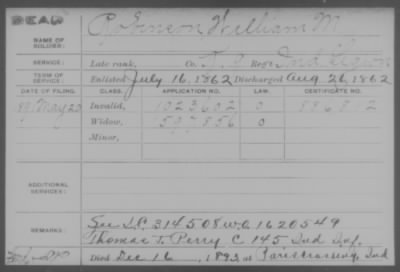 DEAD
Robinson William M
NAME OF SOLDIER:
SERVICE: Late rank, Co. Reg't Ind
TERM OF SERVICE: Enlisted July 16, 1862 Discharged Aug 26, 1862
DATE OF FILING. CLASS. APPLICATION NO. LAW. CERTIFICATE NO.
May 20 Invalid, 1023602 886812
Widow, 1597856
Minor,
ADDITIONAL SERVICES:
REMARKS: See 314508 W.O. 1620549
Thomas T. Perry C 145 Ind Inf.
Died Dec 16, 1893, at Paris Crossing, Ind